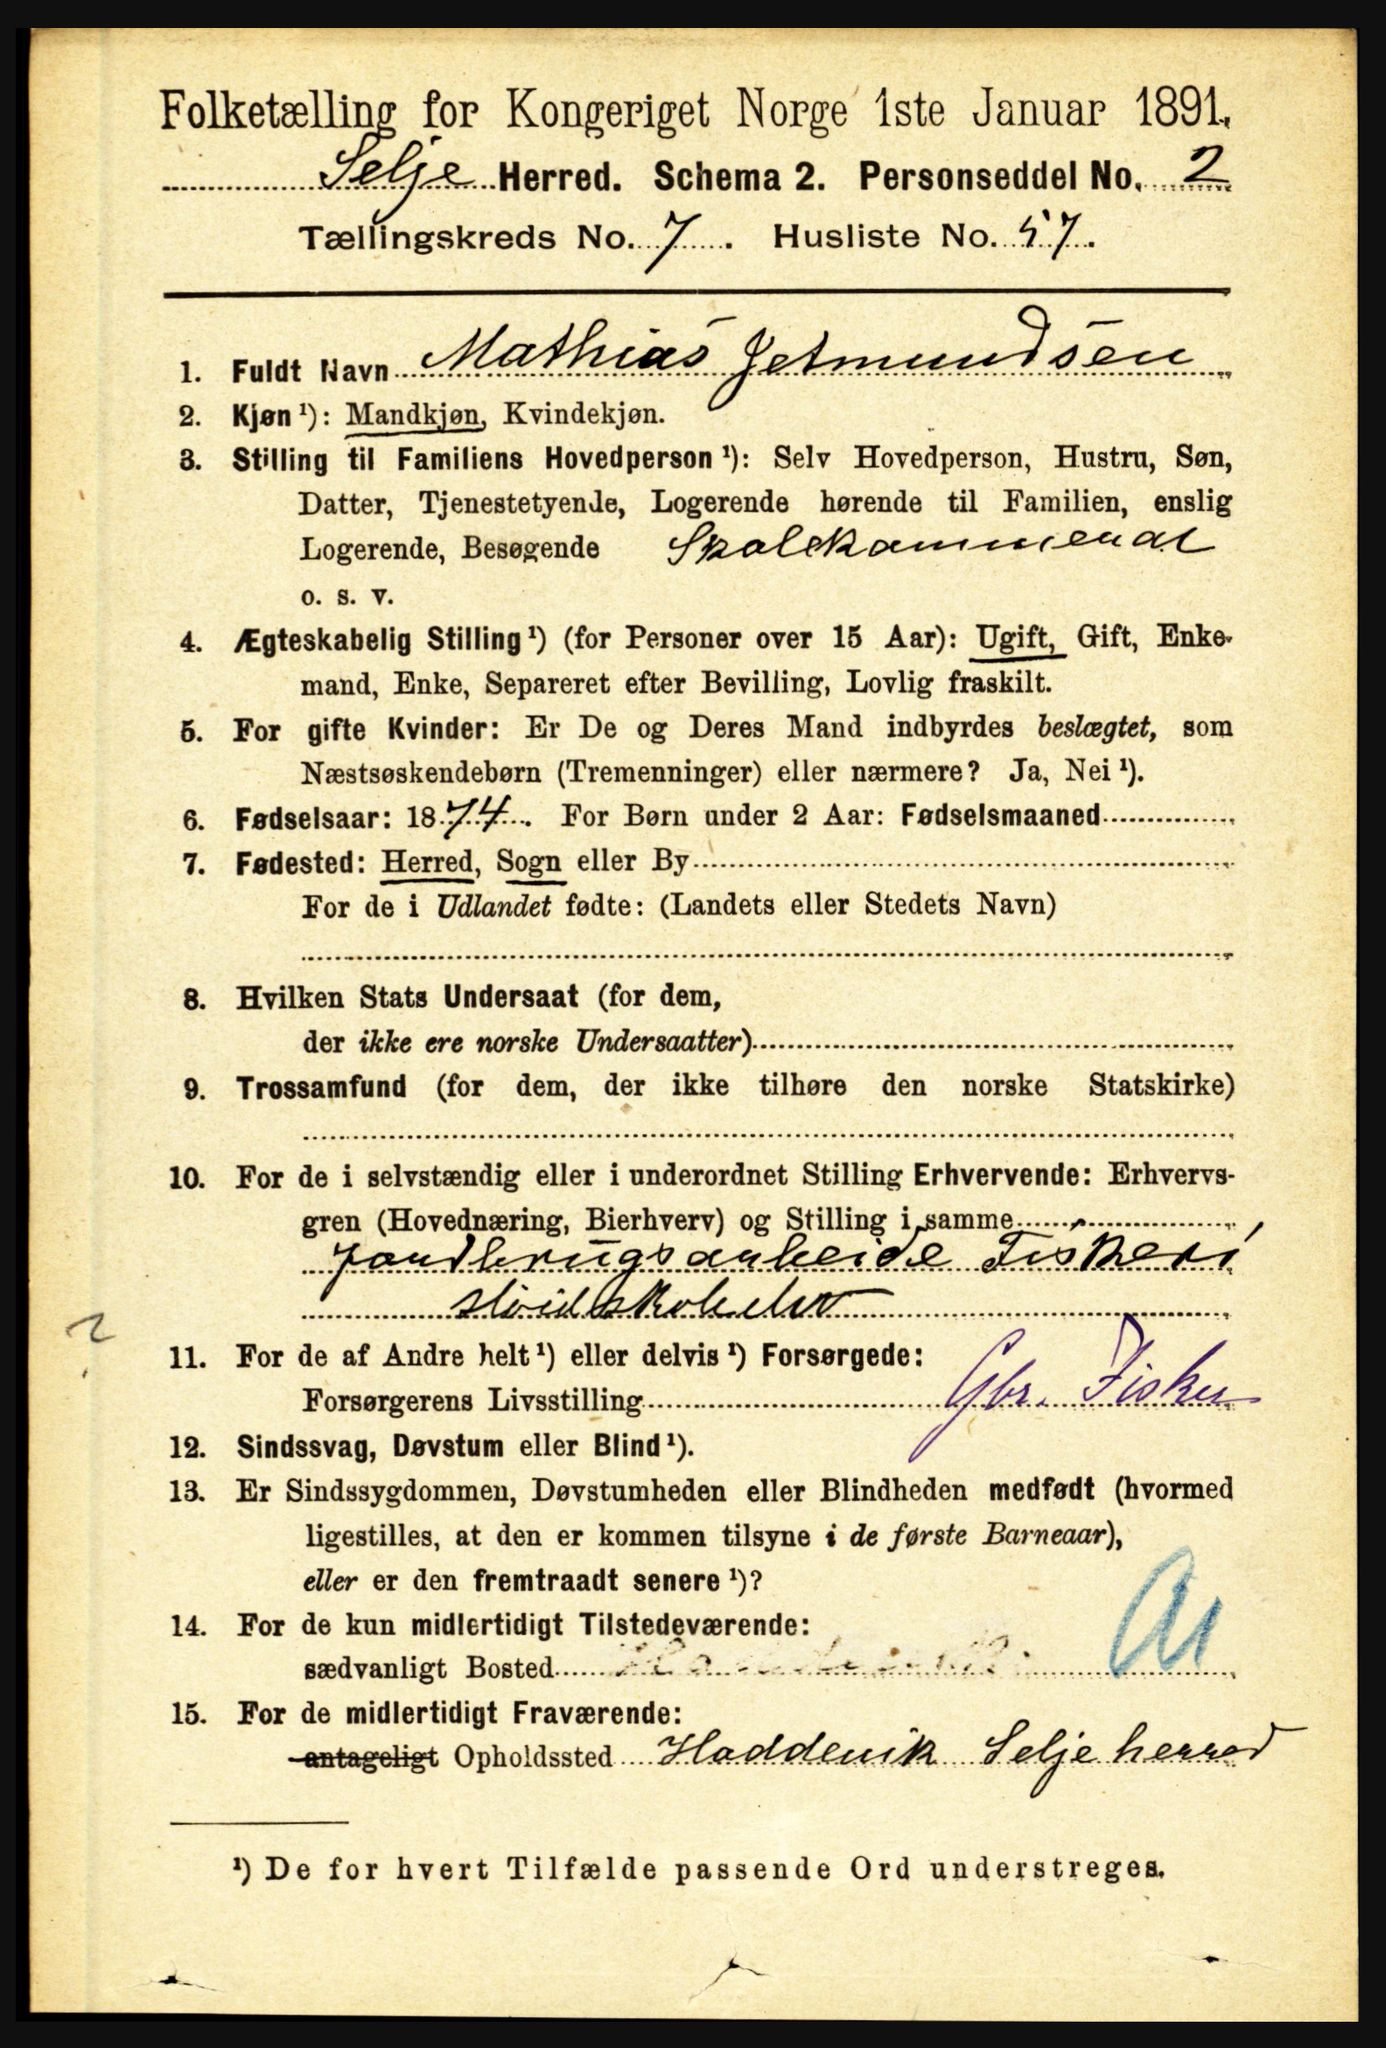 Folketælling for Kongeriget Norge 1ste Januar 1891.
Selje Herred. Schema 2. Personseddel No. 2
Tællingskreds No. 7. Husliste No. 57.
1. Fuldt Navn Mathias Jetmundsen
2. Kjøn ¹): Mandkjøn, Kvindekjøn.
3. Stilling til Familiens Hovedperson ¹): Selv Hovedperson, Hustru, Søn,
Datter, Tjenestetyende, Logerende hørende til Familien, enslig
Logerende, Besøgende
o. s. v.
4. Ægteskabelig Stilling ¹) (for Personer over 15 Aar): Ugift, Gift, Enke-
mand, Enke, Separeret efter Bevilling, Lovlig fraskilt.
5. For gifte Kvinder: Er De og Deres Mand indbyrdes beslægtet, som
Næstsøskendebørn (Tremenninger) eller nærmere? Ja, Nei ¹).
6. Fødselsaar: 1874. For Børn under 2 Aar: Fødselsmaaned
7. Fødested: Herred, Sogn eller By
For de i Udlandet fødte: (Landets eller Stedets Navn)
8. Hvilken Stats Undersaat (for dem,
der ikke ere norske Undersaatter)
9. Trossamfund (for dem, der ikke tilhøre den norske Statskirke)
10. For de i selvstændig eller i underordnet Stilling Erhvervende: Erhvervs-
gren (Hovednæring, Bierhverv) og Stilling i samme
Jordbrugsarbeide Fiskeri
11. For de af Andre helt ¹) eller delvis ¹) Forsørgede:
Forsørgerens Livsstilling Gbr. Fisker
12. Sindssvag, Døvstum eller Blind ¹).
13. Er Sindssygdommen, Døvstumheden eller Blindheden medfødt (hvormed
ligestilles, at den er kommen tilsyne i de første Barneaar),
eller er den fremtraadt senere ¹)?
14. For de kun midlertidigt Tilstedeværende:
sædvanligt Bosted
15. For de midlertidigt Fraværende:
antageligt Opholdssted Haddevik Selje herred
¹) De for hvert Tilfælde passende Ord understreges.